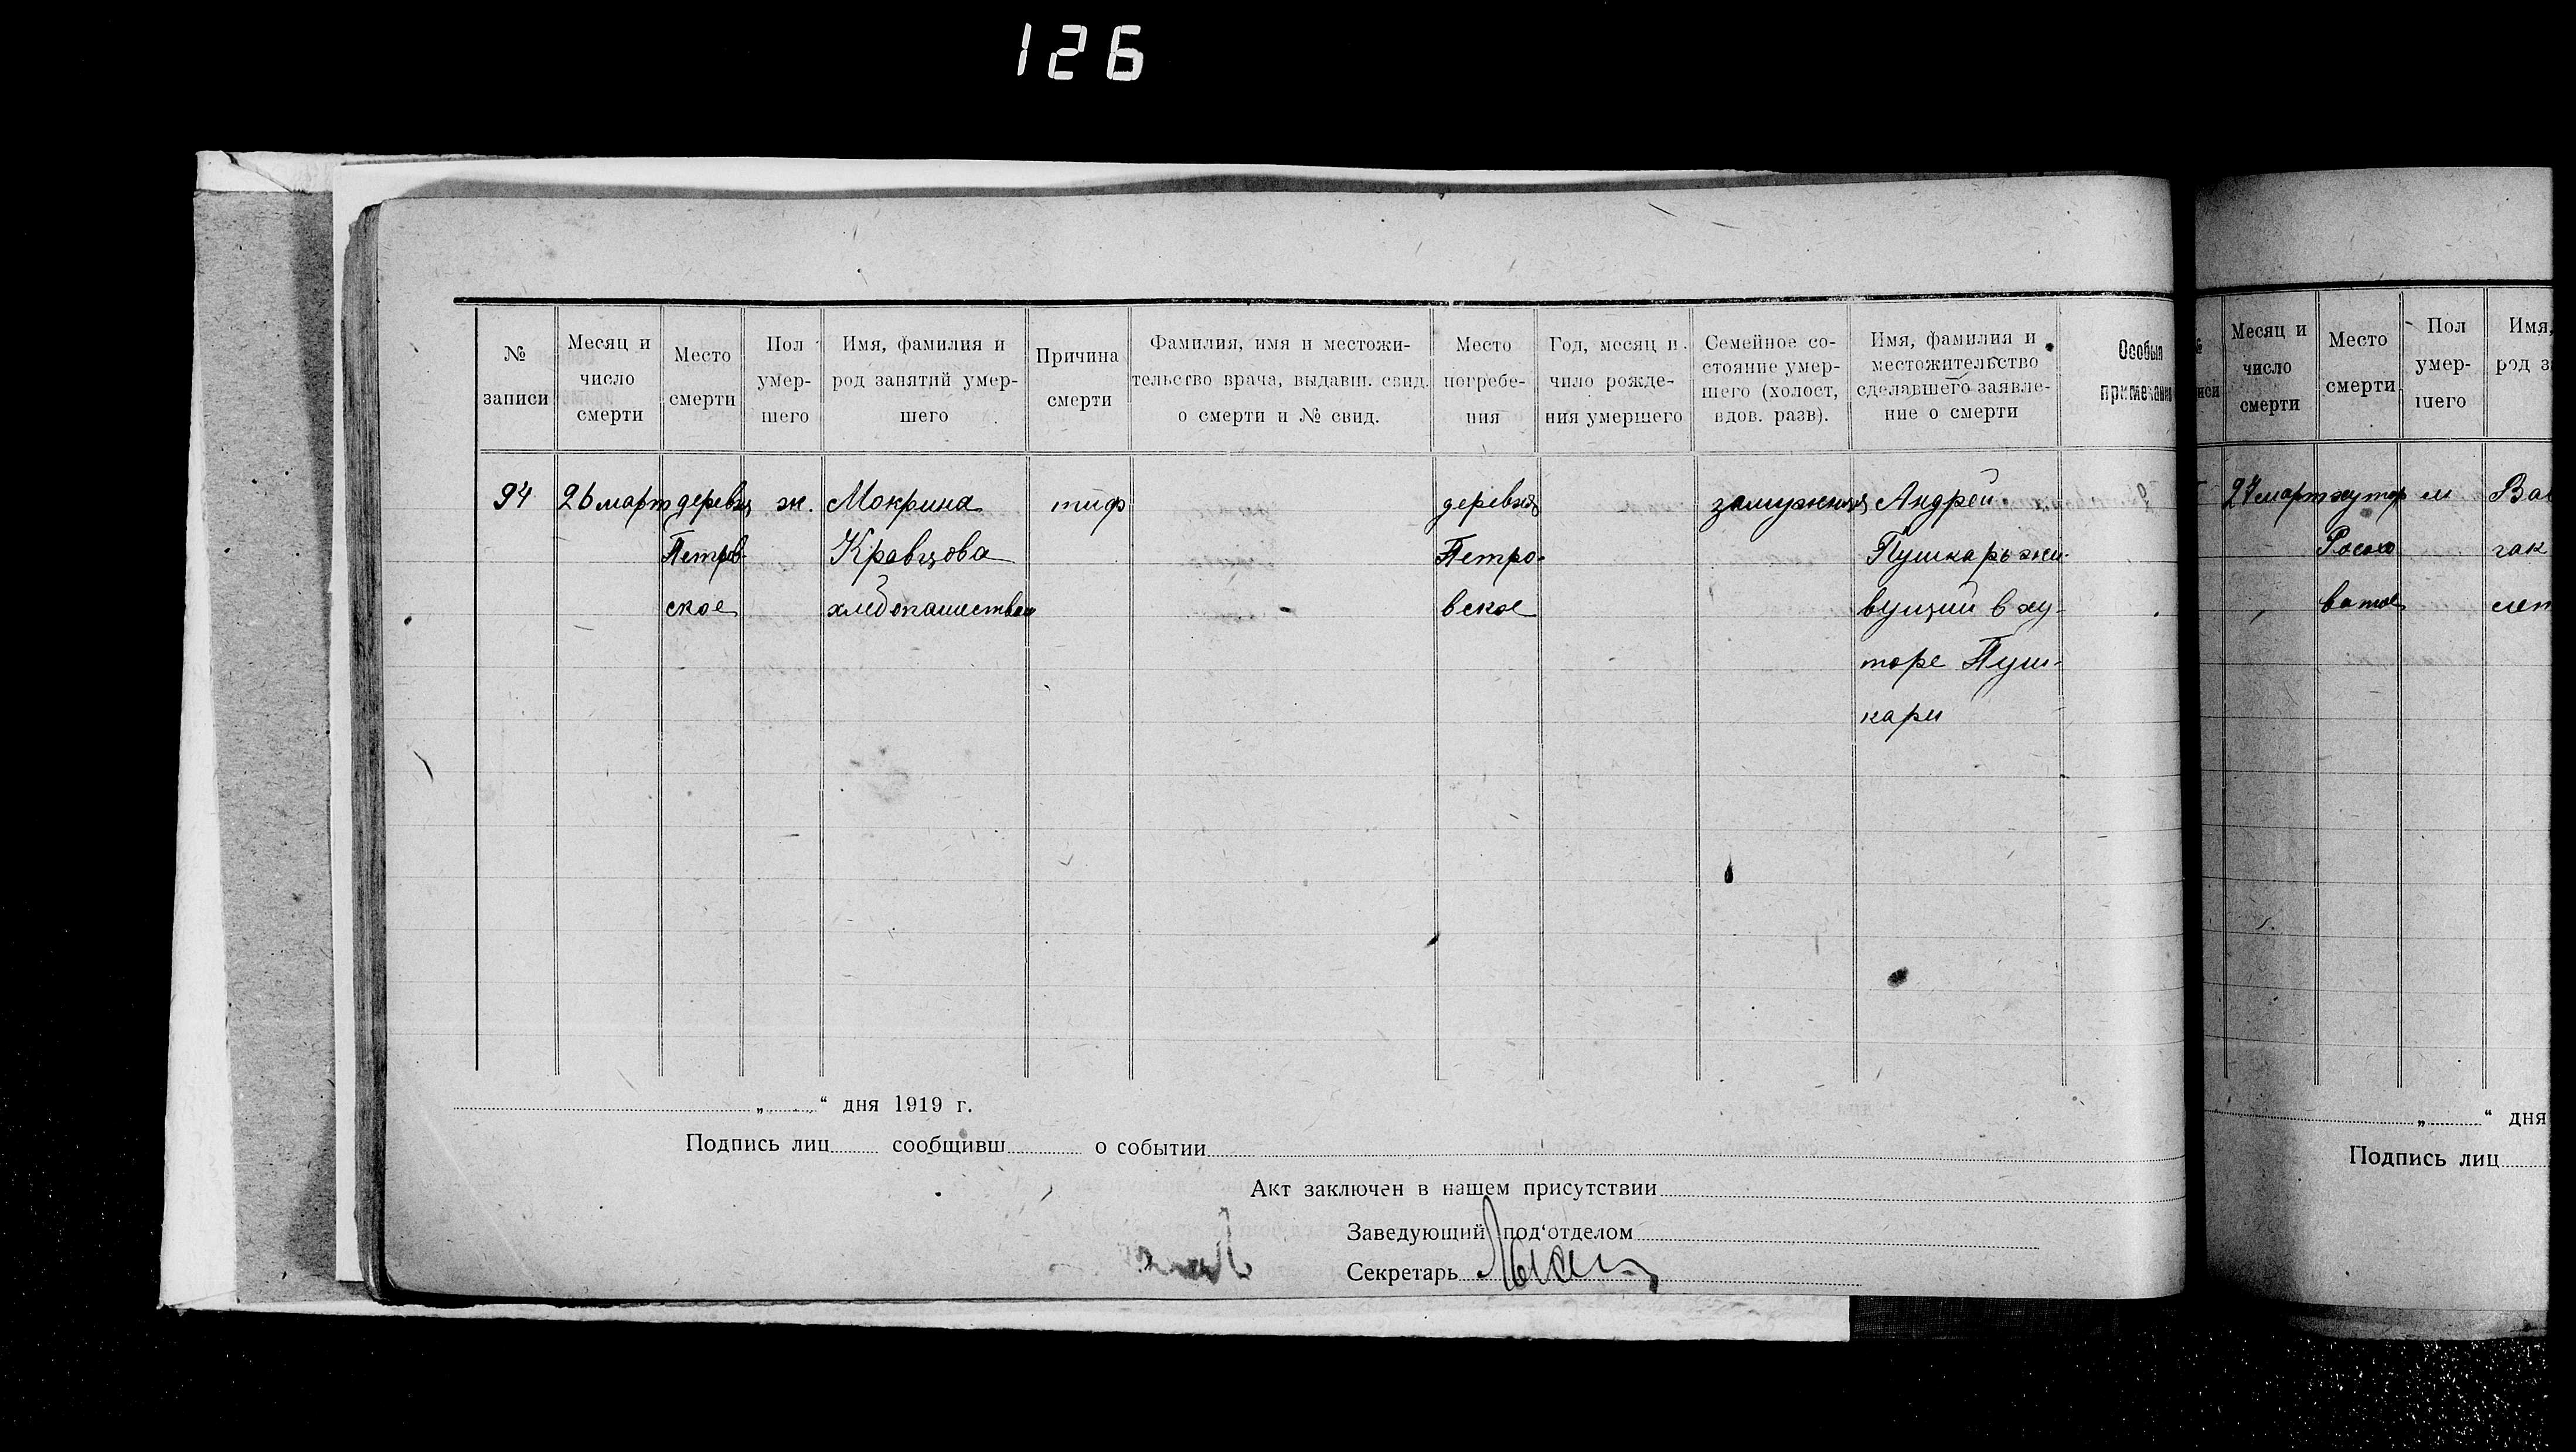 126
№ записи
Месяц и число смерти
Место смерти
Пол умер-шего
Имя, фамилия и род занятий умер-шего
Причина смерти
Фамилия, имя и местожи-тельство врача, выдавш. свид. о смерти и № свид.
Место погребе-ния
Год, месяц и число рожде-ния умершего
Семейное со-стояние умер-шего (холост, вдов. разв).
Имя, фамилия и местожительство сделавшего заявле-ние о смерти
Особыя примечания
94
26 март
деревня
Петров-
ское
ж.
Мокрина
Кравцова
хлебопашество
тиф
деревня
Петро-
вское
замужняя
Андрей
Пушкарь жи-
вущий в ху-
торе Пуш-
кари
„ “ дня 1919 г.
Подпись лиц сообщивш о событии
Акт заключен в нашем присутствии
Заведующий под‘отделом
Секретарь
Месяц и
число
смерти
Место
смерти
Пол
умер-
шего
Имя,
род з
27 март
хутор
Росохо
ватое
м
„ “ дня
Подпись лиц